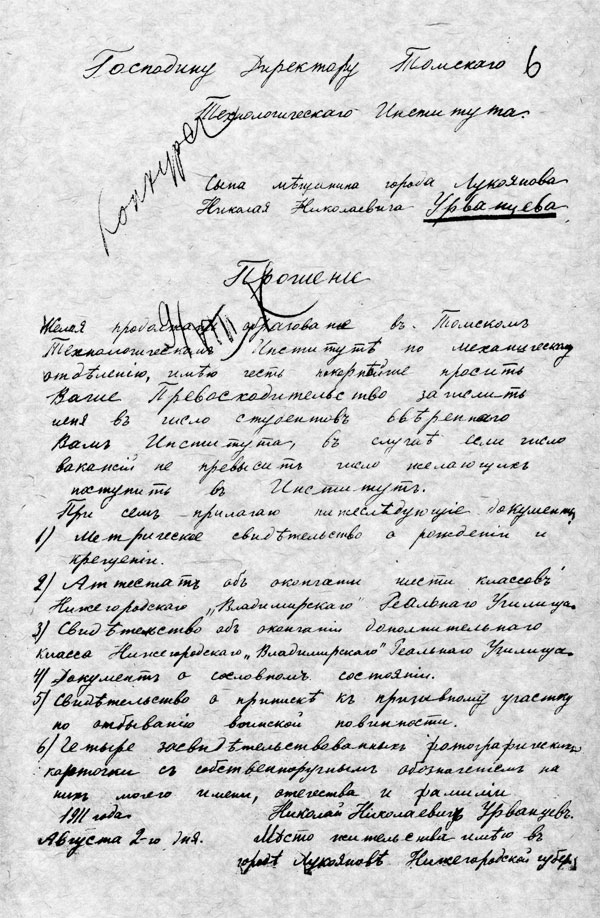 Господину Директору Томскаго 6
Технологическаго Института.
Конкурс
Сына мѣщанина города Лукоянова
Николая Николаевича Урванцева
Прошеніе
Желая продолжать образованіе въ Томскомъ
Технологическомъ Институтѣ по механическому
отдѣленію, имѣю честь покорнѣйше просить
Ваше Превосходительство зачислить
меня въ число студентовъ ввѣреннаго
Вамъ Института, въ случаѣ если число
вакансій не превысить число желающихъ
поступить въ Институтъ.
При семъ прилагаю нижеслѣдующіе документы
1) Метрическое свидѣтельство о рожденіи и
крещеніи.
2) Аттестатъ объ окончаніи шести классовъ
Нижегородскаго „Владимирскаго" Реальнаго Училища.
3) Свидѣтельство объ окончаніи дополнительнаго
класса Нижегородскаго „Владимирскаго" Реальнаго Училища.
4) Документъ о сословномъ состояніи.
5) Свидѣтельство о припискѣ къ призывному участку
по отбыванію воинской повинности.
6) Четыре засвидѣтельствованныхъ фотографическихъ
карточки съ собственноручнымъ обозначеніемъ на
нихъ моего имени, отечества и фамиліи
1911 года Николай Николаевичъ Урванцевъ.
Августа 2-го дня. Мѣсто жительства имѣю въ
городѣ Лукояновѣ Нижегородской губер.